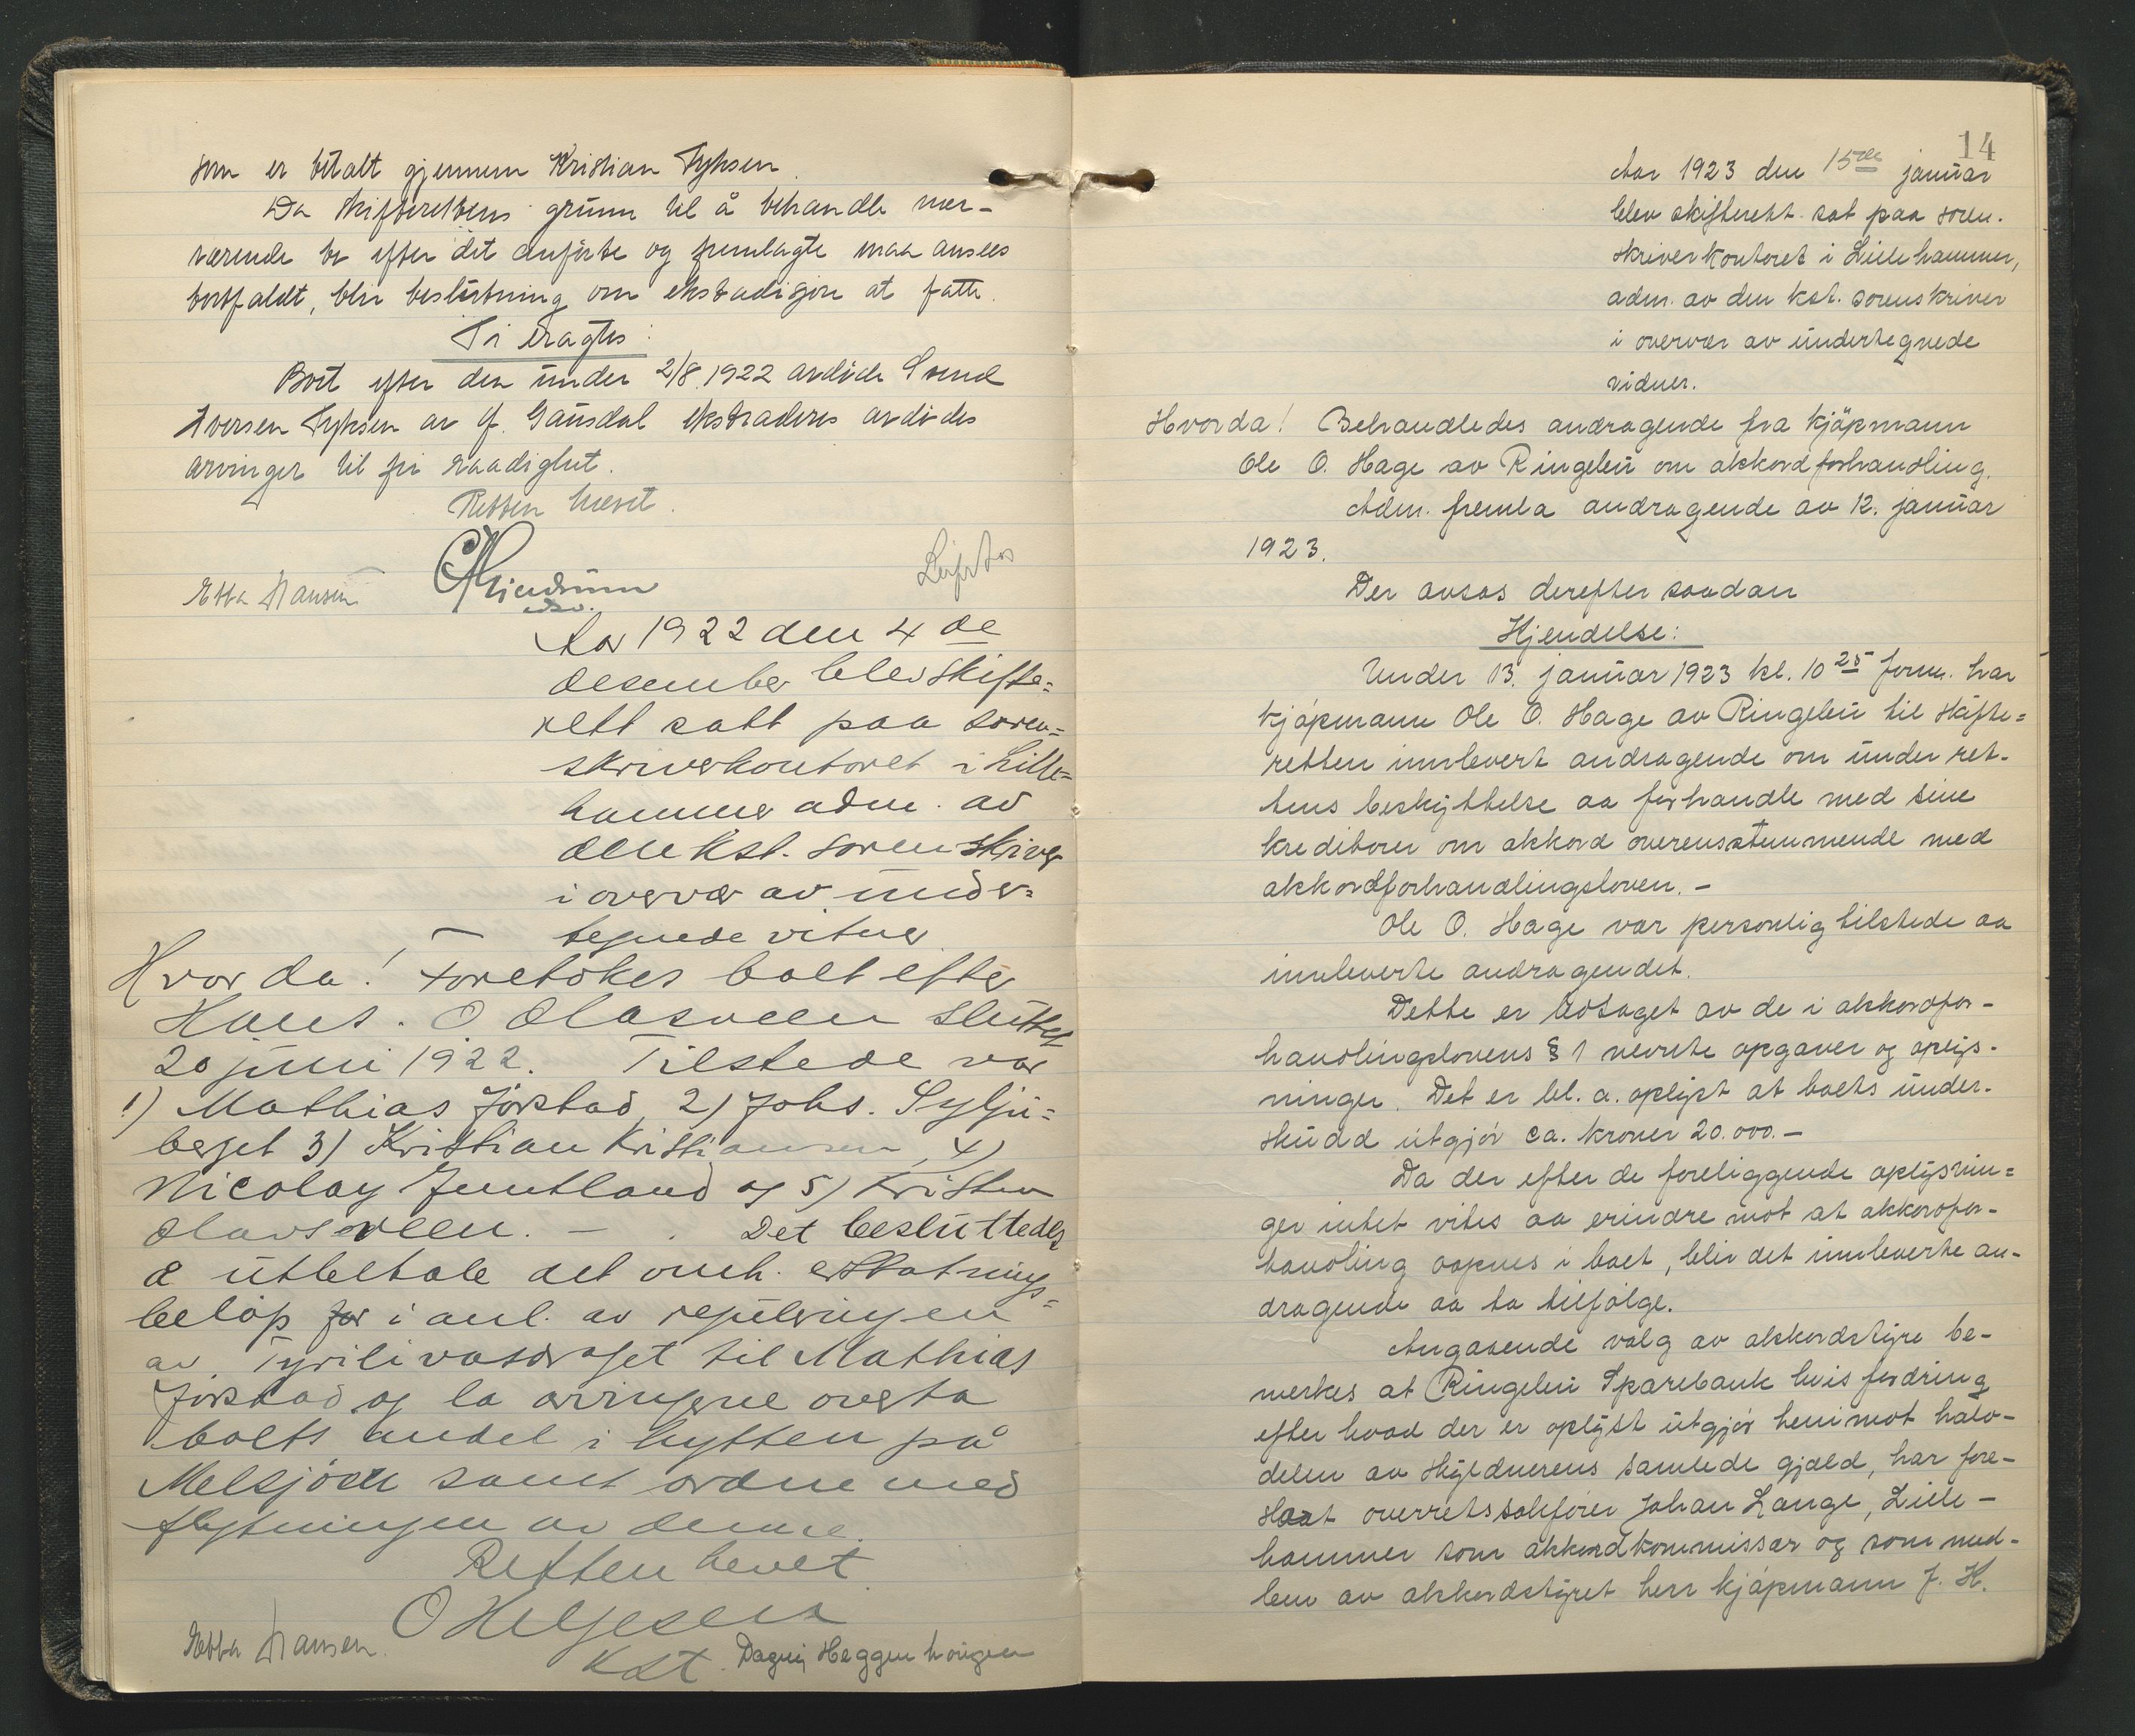 som er betalt gjennem Kristian Fyksen.
Da skifterettens grunn til å behandle nær-
værende bo efter det anførte og fremlagte maa ansees
bortfaldt, blir beslutning om ekstradisjon at fatte.
Ti eragtes:
Boet efter den under 2/8 1922 avdøde Svend
Iversen Fyksen av Ø. Gausdal ekstraderes avdødes
arvinger til fri raadighet.
Retten hævet.
Ebba Hansen
Aar 1922 den 4de
desember blev skifte=
rett satt paa soren=
skriverkontoret i Lille=
hammer adm. av
den kst. sorenskriver
i overvær av under=
tegnede vitner
Hvorda! Foretokes boet efter
Hans. O Olasveen sluttet
20 juni 1922. Tilstede var
1) Mathias Jørstad, 2) Johs. Sylju=
berget 3) Kristian Kristiansen, 4)
Nicolay Jemtland og 5) Kristen
Olavsveen. — . Det besluttedes
å utbetale det omh. erstatnings=
beløp for i anl. av reguleringen
av Tyrilivasdraget til Mathias
Jørstad og la arvingene overta
boets andel i hytten på
Melsjøen samt ordne med
flytningen av denne.
Retten hevet.
O Helgesen
kst.
Ebba Hansen.
Dagny Heggenhougen
14
Aar 1923 den 15de januar
blev skifterett sat paa soren-
skriverkontoret i Lillehammer,
adm. av den kst. sorenskriver
i overvær av undertegnede
vidner.
Hvorda! Behandledes andragende fra kjøpmann
Ole O. Hage av Ringebu om akkordforhandling.
Adm. fremla andragende av 12. januar
1923.
Der avsas derefter saadan
Kjendelse:
Under 13. januar 1923 kl. 10 25 form. har
kjøpmann Ole O. Hage av Ringebu til skifte=
retten innlevert andragende om under ret-
tens beskyttelse aa forhandle med sine
kreditorer om akkord overensstemmende med
akkordforhandlingsloven. -
Ole O. Hage var personlig tilstede aa
innleverte andragendet.
Dette er ledsaget av de i akkordfor-
handlingslovens § 1 nevnte opgaver og oplys-
ninger. Det er bl. a. oplyst at boets under-
skudd utgjør ca. kroner 20.000.-
Da der efter de foreliggende oplysnin=
ger intet vites aa erindre mot at akkordfor-
handling aapnes i boet, blir det innleverte an-
dragende aa ta tilfølge.
Angaaende valg av akkordstyre be-
merkes at Ringebu Sparebank hvis fordring
efter hvad der er oplyst utgjør henimot halv-
delen av skyldnerens samlede gjæld, har fore-
slaat overretssakfører Johan Lange, Lille-
hammer som akkordkommissær og som med-
lem av akkordstyret herr kjøpmann J. H.